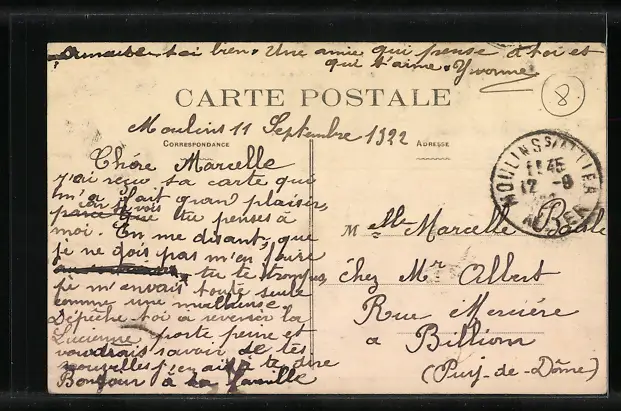 toi bien. Une amie qui pense à toi et
qui t'aime. Yvonne
8
CARTE POSTALE
Moulins 11 Septembre 1922
CORRESPONDANCE
ADRESSE
Chère Marcelle
j'ai reçu ta carte qui
m'a fait grand plaisir,
car je vois
parce que tu penses à
moi. En me disant, que
je ne dois pas m'en faire
tu te trompes,
je m'envais toute seule
comme une malheureuse
Dépêche toi à reverser la
Lucienne porte peine et
voudrais savoir de tes
nouvelles j'en ai à te dire
Bonjour à ta famille
MOULINS S/ALLIER
11 45
12 - 9
ALLIER
Melle Marcelle
chez Mr Albert
Rue Mercière
à Billiom
(Puy-de-Dôme)